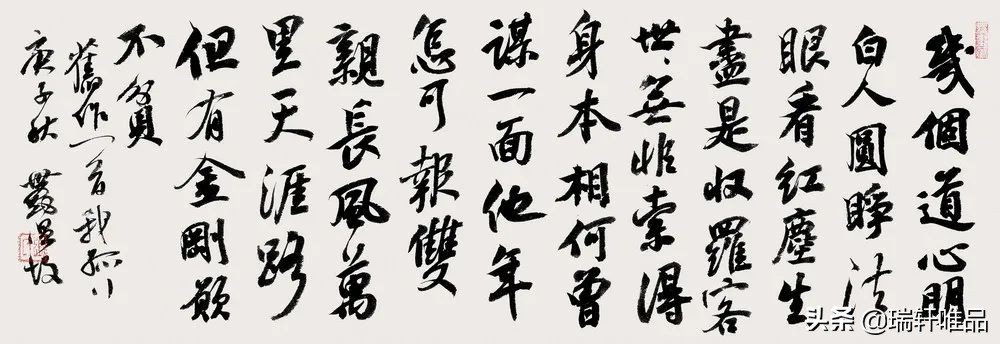 幾個道心明
白人圓睜法
眼看紅塵生
盡是收羅客
世、無非索得
身本相何曾
謀一面他年
怎可報雙
親長風萬
里天涯路
但有金剛願
不貧
舊作一首我孤行
庚子秋
头条@瑞轩唯品